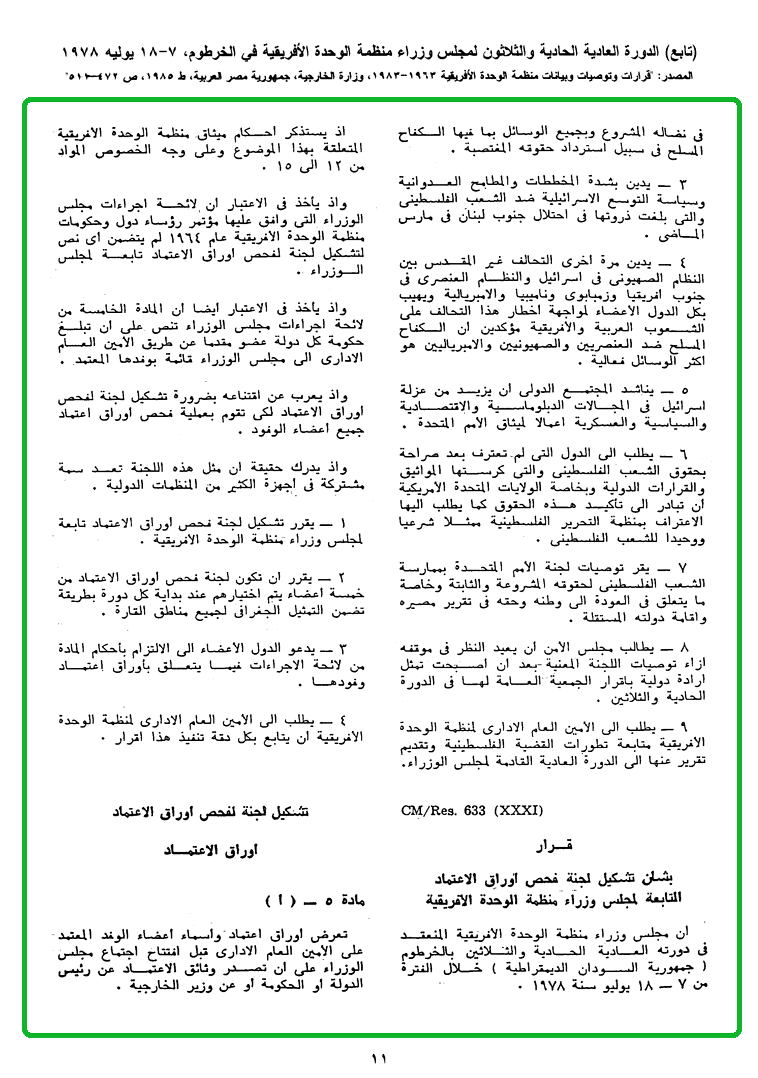 (تابع) الدورة العادية الحادية والثلاثون لمجلس وزراء منظمة الوحدة الأفريقية في الخرطوم، ٧-١٨ يوليه ١٩٧٨
المصدر: "قرارات وتوصيات وبيانات منظمة الوحدة الأفريقية ١٩٦٣-١٩٨٣، وزارة الخارجية، جمهورية مصر العربية، ط ١٩٨٥، ص ٤٧٢-٥١١"
فى نضاله المشروع وبجميع الوسائل بما فيها الكفاح
المسلح فى سبيل استرداد حقوقه المغتصبة .
٣ — يدين بشدة المخططات والمطامح العدوانية
وسياسة التوسع الاسرائيلية ضد الشعب الفلسطينى
والتى بلغت ذروتها فى احتلال جنوب لبنان فى مارس
الماضى .
٤ — يدين مرة أخرى التحالف غير المقدس بين
النظام الصهيونى فى اسرائيل والنظام العنصرى فى
جنوب افريقيا وزمبابوى وناميبيا والامبريالية ويهيب
بكل الدول الأعضاء لمواجهة اخطار هذا التحالف على
الشعوب العربية والأفريقية مؤكدين ان الكفاح
المسلح ضد العنصريين والصهيونيين والامبرياليين هو
اكثر الوسائل فعالية .
٥ — يناشد المجتمع الدولى ان يزيد من عزلة
اسرائيل فى المجالات الدبلوماسية والاقتصادية
والسياسية والعسكرية اعمالا لميثاق الأمم المتحدة .
٦ — يطلب الى الدول التى لم تعترف بعد صراحة
بحقوق الشعب الفلسطينى والتى كرستها المواثيق
والقرارات الدولية وبخاصة الولايات المتحدة الأمريكية
أن تبادر الى تأكيد هذه الحقوق كما يطلب اليها
الاعتراف بمنظمة التحرير الفلسطينية ممثلا شرعيا
ووحيدا للشعب الفلسطينى .
٧ — يقر توصيات لجنة الأمم المتحدة بممارسة
الشعب الفلسطينى لحقوقه المشروعة والثابتة وخاصة
ما يتعلق فى العودة الى وطنه وحقه فى تقرير مصيره
واقامة دولته المستقلة .
٨ — يطالب مجلس الأمن أن يعيد النظر فى موقفه
ازاء توصيات اللجنة المعنية بعد ان اصبحت تمثل
ارادة دولية باقرار الجمعية العامة لها فى الدورة
الحادية والثلاثين .
٩ — يطلب الى الأمين العام الادارى لمنظمة الوحدة
الأفريقية متابعة تطورات القضية الفلسطينية وتقديم
تقرير عنها الى الدورة العادية القادمة لمجلس الوزراء.
CM/Res. 633 (XXXI)
قرار
بشأن تشكيل لجنة فحص أوراق الاعتماد
التابعة لمجلس وزراء منظمة الوحدة الأفريقية
ان مجلس وزراء منظمة الوحدة الأفريقية المنعقد
فى دورته العادية الحادية والثلاثين بالخرطوم
( جمهورية السودان الديمقراطية ) خلال الفترة
من ٧ — ١٨ يوليو سنة ١٩٧٨ .
اذ يستذكر احكام ميثاق منظمة الوحدة الأفريقية
المتعلقة بهذا الموضوع وعلى وجه الخصوص المواد
من ١٢ الى ١٥ .
واذ يأخذ فى الاعتبار ان لائحة اجراءات مجلس
الوزراء التى وافق عليها مؤتمر رؤساء دول وحكومات
منظمة الوحدة الأفريقية عام ١٩٦٤ لم يتضمن أى نص
لتشكيل لجنة لفحص أوراق الاعتماد تابعة لمجلس
الوزراء .
واذ يأخذ فى الاعتبار ايضا ان المادة الخامسة من
لائحة اجراءات مجلس الوزراء تنص على ان تبلغ
حكومة كل دولة عضو مقدما عن طريق الأمين العام
الادارى الى مجلس الوزراء قائمة بوفدها المعتمد .
واذ يعرب عن اقتناعه بضرورة تشكيل لجنة لفحص
أوراق الاعتماد لكى تقوم بعملية فحص أوراق اعتماد
جميع أعضاء الوفود .
واذ يدرك حقيقة ان مثل هذه اللجنة تعد سمة
مشتركة فى أجهزة الكثير من المنظمات الدولية .
١ — يقرر تشكيل لجنة فحص أوراق الاعتماد تابعة
لمجلس وزراء منظمة الوحدة الأفريقية .
٢ — يقرر ان تكون لجنة فحص أوراق الاعتماد من
خمسة اعضاء يتم اختيارهم عند بداية كل دورة بطريقة
تضمن التمثيل الجغرافى لجميع مناطق القارة .
٣ — يدعو الدول الأعضاء الى الالتزام بأحكام المادة
من لائحة الاجراءات فيما يتعلق بأوراق اعتماد
وفودها .
٤ — يطلب الى الأمين العام الادارى لمنظمة الوحدة
الأفريقية ان يتابع بكل دقة تنفيذ هذا اقرار .
تشكيل لجنة لفحص أوراق الاعتماد
أوراق الاعتماد
مادة ٥ — ( أ )
تعرض أوراق اعتماد وأسماء أعضاء الوفد المعتمد
على الأمين العام الادارى قبل افتتاح اجتماع مجلس
الوزراء على ان تصدر وثائق الاعتماد عن رئيس
الدولة او الحكومة او عن وزير الخارجية .
١١